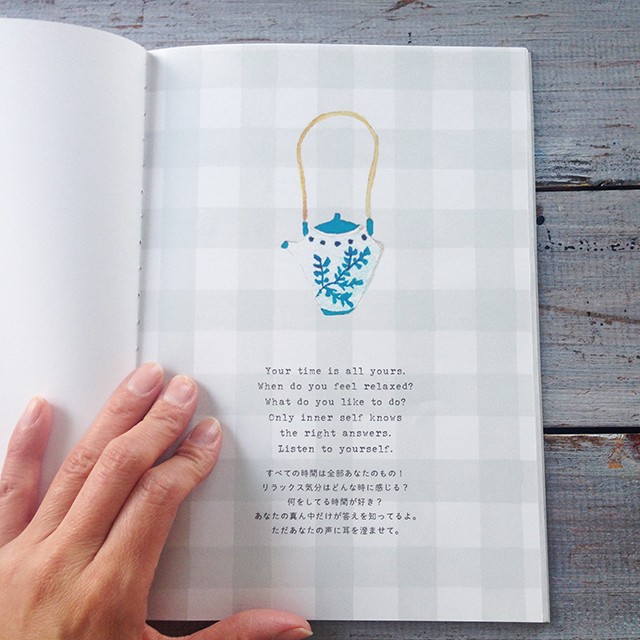 Your time is all yours.
When do you feel relaxed?
What do you like to do?
Only inner self knows
the right answers.
Listen to yourself.
すべての時間は全部あなたのもの！
リラックス気分はどんな時に感じる？
何をしてる時間が好き？
あなたの真ん中だけが答えを知ってるよ。
ただあなたの声に耳を澄ませて。